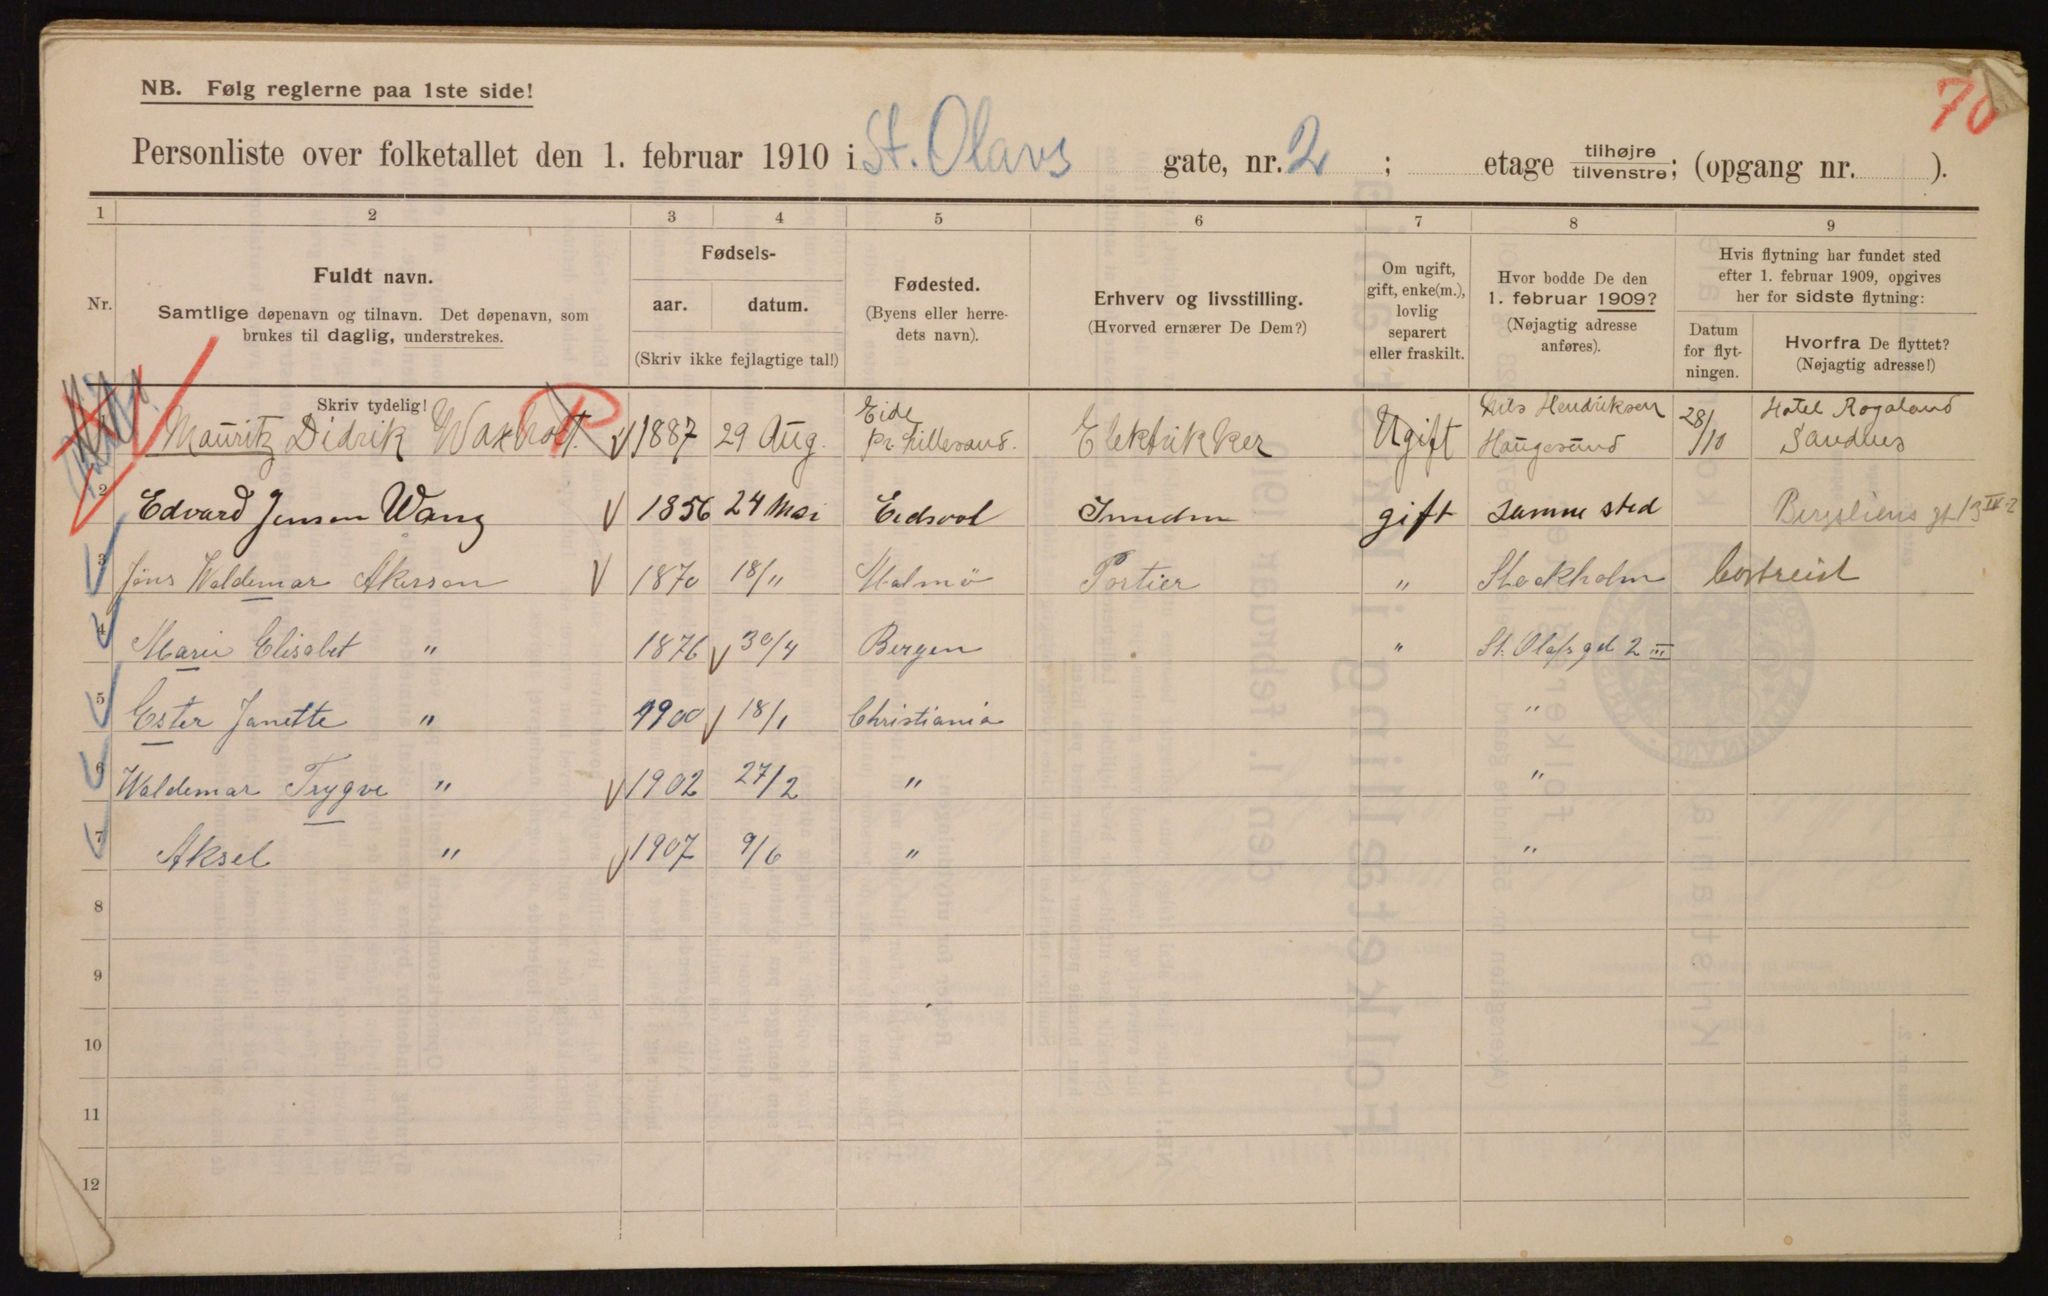 70
NB. Følg reglerne paa 1ste side!
Personliste over folketallet den 1. februar 1910 i St. Olavs gate, nr. 2 ; etage tilhøjre tilvenstre; (opgang nr. ).
1 2 3 4 5 6 7 8 9
Nr.
Fuldt navn.
Samtlige døpenavn og tilnavn. Det døpenavn, som
brukes til daglig, understrekes.
Skriv tydelig!
Fødsels-
aar. datum.
(Skriv ikke fejlagtige tal!)
Fødested.
(Byens eller herre-
dets navn).
Erhverv og livsstilling.
(Hvorved ernærer De Dem?)
Om ugift,
gift, enke(m.),
lovlig
separert
eller fraskilt.
Hvor bodde De den
1. februar 1909?
(Nøjagtig adresse
anføres).
Hvis flytning har fundet sted
efter 1. februar 1909, opgives
her for sidste flytning:
Datum
for flyt-
ningen.
Hvorfra De flyttet?
(Nøjagtig adresse!)
1 Mauritz Didrik Waxholt. 1887 29 Aug. Eide pr. Lillesand. Elektrikker Ugift Nils Hendriksen Haugesund 28/10 Hotel Rogaland Sandnes
2 Edvard Jensen Wang 1856 24 Mai Eidsvol gift samme sted Bergsliens gt 13 IV-2
3 Jöns Waldemar Åkesson 1870 18/11 Malmö Portier " Stockholm bortreist
4 Marie Elisabet " 1876 30/4 Bergen " St. Olafs gd 2 III
5 Ester Janette " 1900 18/1 Christiania "
6 Waldemar Trygve " 1902 27/2 " "
7 Aksel " 1907 9/6 " "
8
9
10
11
12